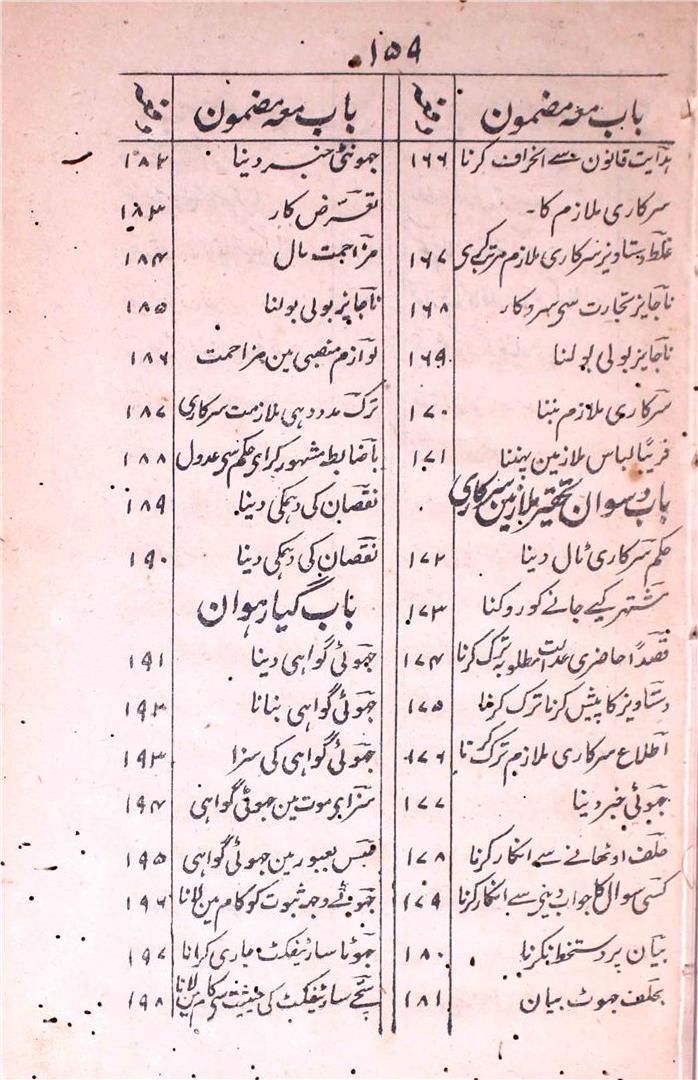 ۱۵۹
باب معہ مضمون دفعہ
ہدایت قانون سے انحراف کرنا ۱۶۶
سرکاری ملازم کا۔
غلط دستاویز سرکاری ملازم مرتب کرے ۱۶۷
ناجایز تجارت سی سروکار ۱۶۸
ناجایز بولی بولنا ۱۶۹
سرکاری ملازم بننا ۱۷۰
فریباً لباس ملازمین پہننا ۱۷۱
باب دسوان تحقیر ملازمین سرکاری
حکم سرکاری ٹال دینا ۱۷۲
مشتہر کیے جانے کو روکنا ۱۷۳
قصداً حاضری عدالت مطلوبہ ترک کرنا ۱۷۴
دستاویز کا پیش کرنا ترک کرنا ۱۷۵
اطلاع سرکاری ملازم ترک کرنا ۱۷۶
جھوٹی خبر دینا ۱۷۷
حلف اوٹھانے سے انکار کرنا ۱۷۸
کسی سوال کا جواب دینی سے انکار کرنا ۱۷۹
بیان پر دستخط نکرنا ۱۸۰
بحلف جھوٹ بیان ۱۸۱
باب معہ مضمون دفعہ
جھوٹی خبر دینا ۱۸۲
تعرض کار ۱۸۳
مزاحمت مال ۱۸۴
ناجایز بولی بولنا ۱۸۵
لوازم منصبی مین مزاحمت ۱۸۶
ترک مدد دہی ملازمت سرکاری ۱۸۷
باضابطہ مشہور کرای حکم سی عدول ۱۸۸
نقصان کی دہمکی دینا ۱۸۹
نقصان کی دہمکی دینا ۱۹۰
باب گیارہوان
جھوٹی گواہی دینا ۱۹۱
جھوٹی گواہی بنانا ۱۹۲
جھوٹی گواہی کی سزا ۱۹۳
سزای موت مین جھوٹی گواہی ۱۹۴
حبس بعبور مین جھوٹی گواہی ۱۹۵
جھوٹے وجہ ثبوت کو کام مین لانا ۱۹۶
جھوٹا سارٹیفکٹ جاری کرانا ۱۹۷
سچے سارٹیفکٹ کی حیثیت سی کام مین لانا ۱۹۸